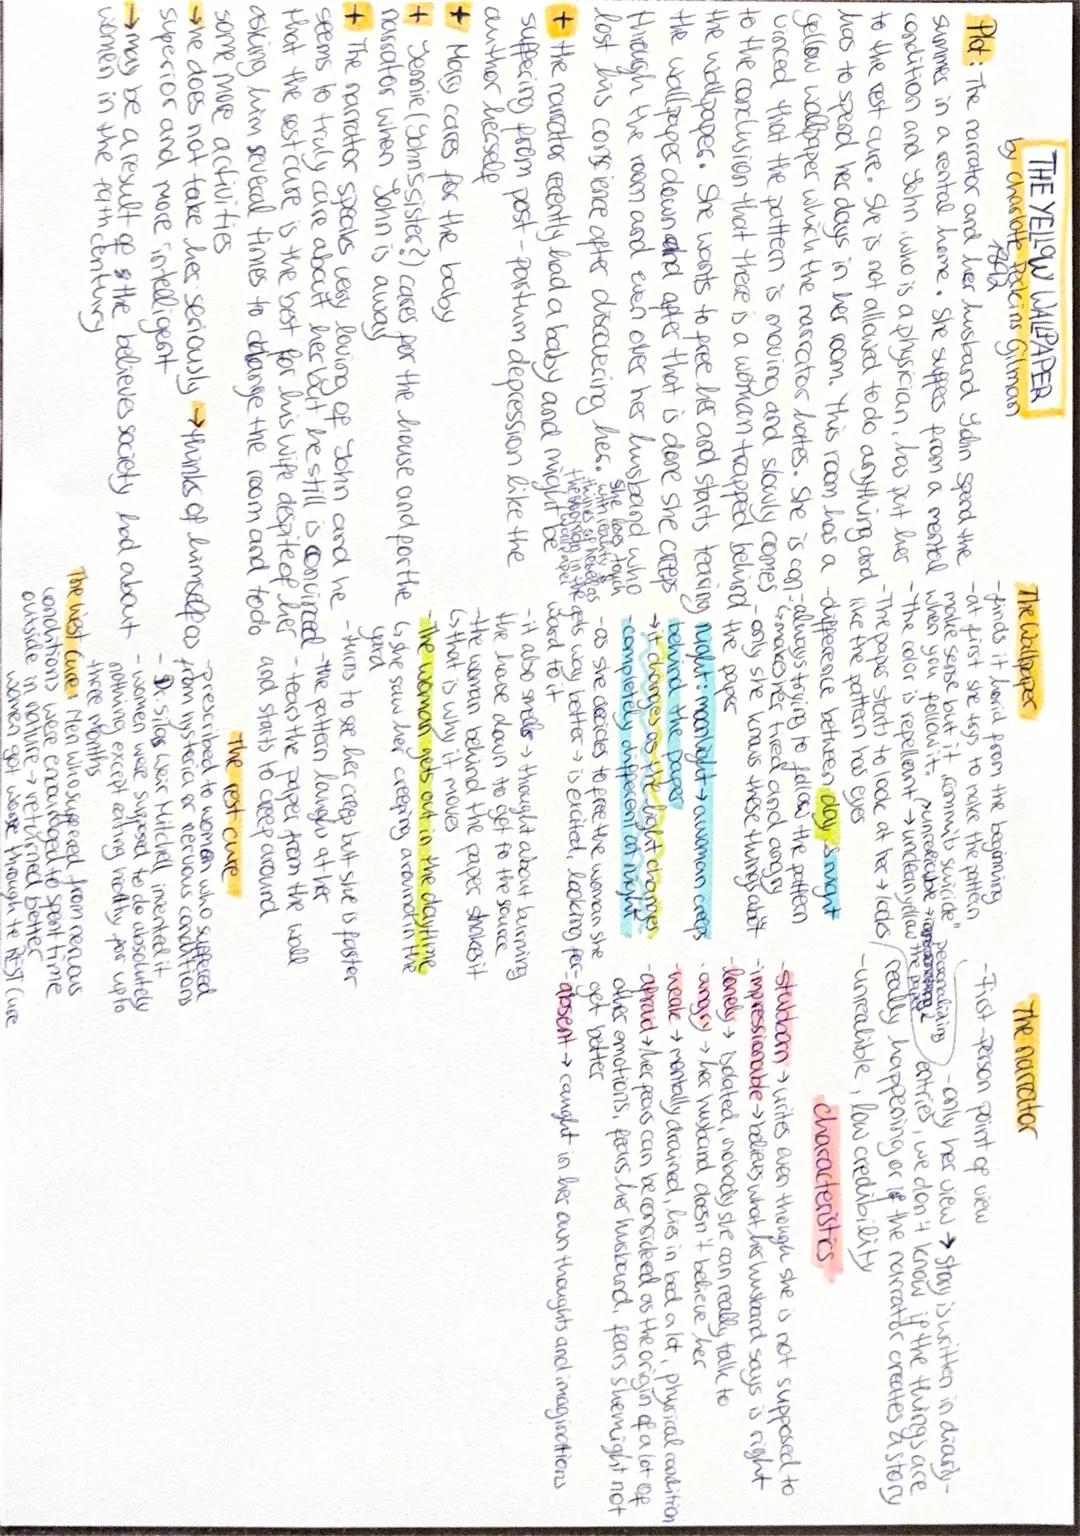 THE YELLOW WALLPAPER
by Charlotte Perkins Gilman
1892
Plot: The narrator and her husband John spend the
summer in a rental home. She suffers from a mental
condition and John, who is a physician, has put her
to the rest cure. She is not allowed to do anything and
has to spend her days in her room. This room has a
yellow wallpaper which the narrator hates. She is con-
vinced that the pattern is moving and slowly comes
to the conclusion that there is a woman trapped behind
the wallpaper. She wants to free her and starts tearing
the wallpaper down and after that is done she creeps
through the room and even over her husband who
lost his conscience after discovering her.
She loses touch
with reality &
thinks of herself as
the woman in the
wallpaper
+ the narrator recently had a baby and might be
suffering from post-partum depression like the
author herself
+ Mary cares for the baby
+ Jennie (John's sister?) cares for the house and for the
narrator when John is away
+ The narrator speaks very loving of John and he
seems to truly care about her but he still is convinced
that the rest cure is the best for his wife despite of her
asking him several times to change the room and to do
some more activities
→ he does not take her seriously → thinks of himself as
superior and more intelligent
→ may be a result of the believes society had about
women in the 19th century
The Wallpaper
- finds it horrid from the beginning
- at first she trys to make the pattern
make sense but it „commits suicide"
when you follow it.
- The color is repellent → unclean yellow
- The paper starts to look at her → looks
like the pattern has eyes
- difference between day & night
- always trying to follow the pattern
↳ makes her tired and angry
- only she knows these things about
the paper
night: moonlight → a woman creeps
behind the paper
→ it changes as the light changes
- completely different at night
- as she decides to free the woman she
gets way better → is excited, looking for-
ward to it
- it also smells → thought about burning
the house down to get to the source
- the woman behind the paper shakes it
↳ that is why it moves
- The woman gets out in the daytime
↳ she saw her creeping around in the
yard
- turns to see her creep but she is faster
- the pattern laughs at her
- tears the paper from the wall
and starts to creep around
The rest cure
- prescribed to women who suffered
from hysteria or nervous conditions
- Dr. Silas Weir Mitchell invented it
- women were supposed to do absolutely
nothing except eating healthy for up to
three months
The West Cure: Men who suffered from nervous
conditions were encouraged to spent time
outside in nature → returned better
women got worse through the Rest Cure
The narrator
- First-person point of view
- only her view → story is written in diary-
entries, we don't know if the things are
really happening or if the narrator creates a story
- unrealible, low credibility
personalizing
the paper
characteristics
- stubborn → writes even though she is not supposed to
- impressionable → believes what her husband says is right
- lonely → isolated, nobody she can really talk to
- angry → her husband doesn't believe her
- weak → mentally drained, lies in bed a lot, physical condition
- afraid → her fears can be considered as the origin of a lot of
other emotions, fears her husband, fears she might not
get better
- absent → caught in her own thoughts and imaginations